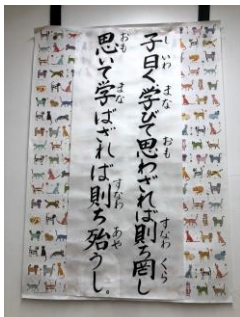 子曰く学びて思わざれば則ち罔し
思いて学ばざれば則ち殆うし。